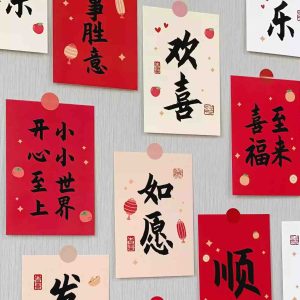 事胜意
欢喜
乐
小小世界
开心至上
喜至
福来
如愿
顺
发